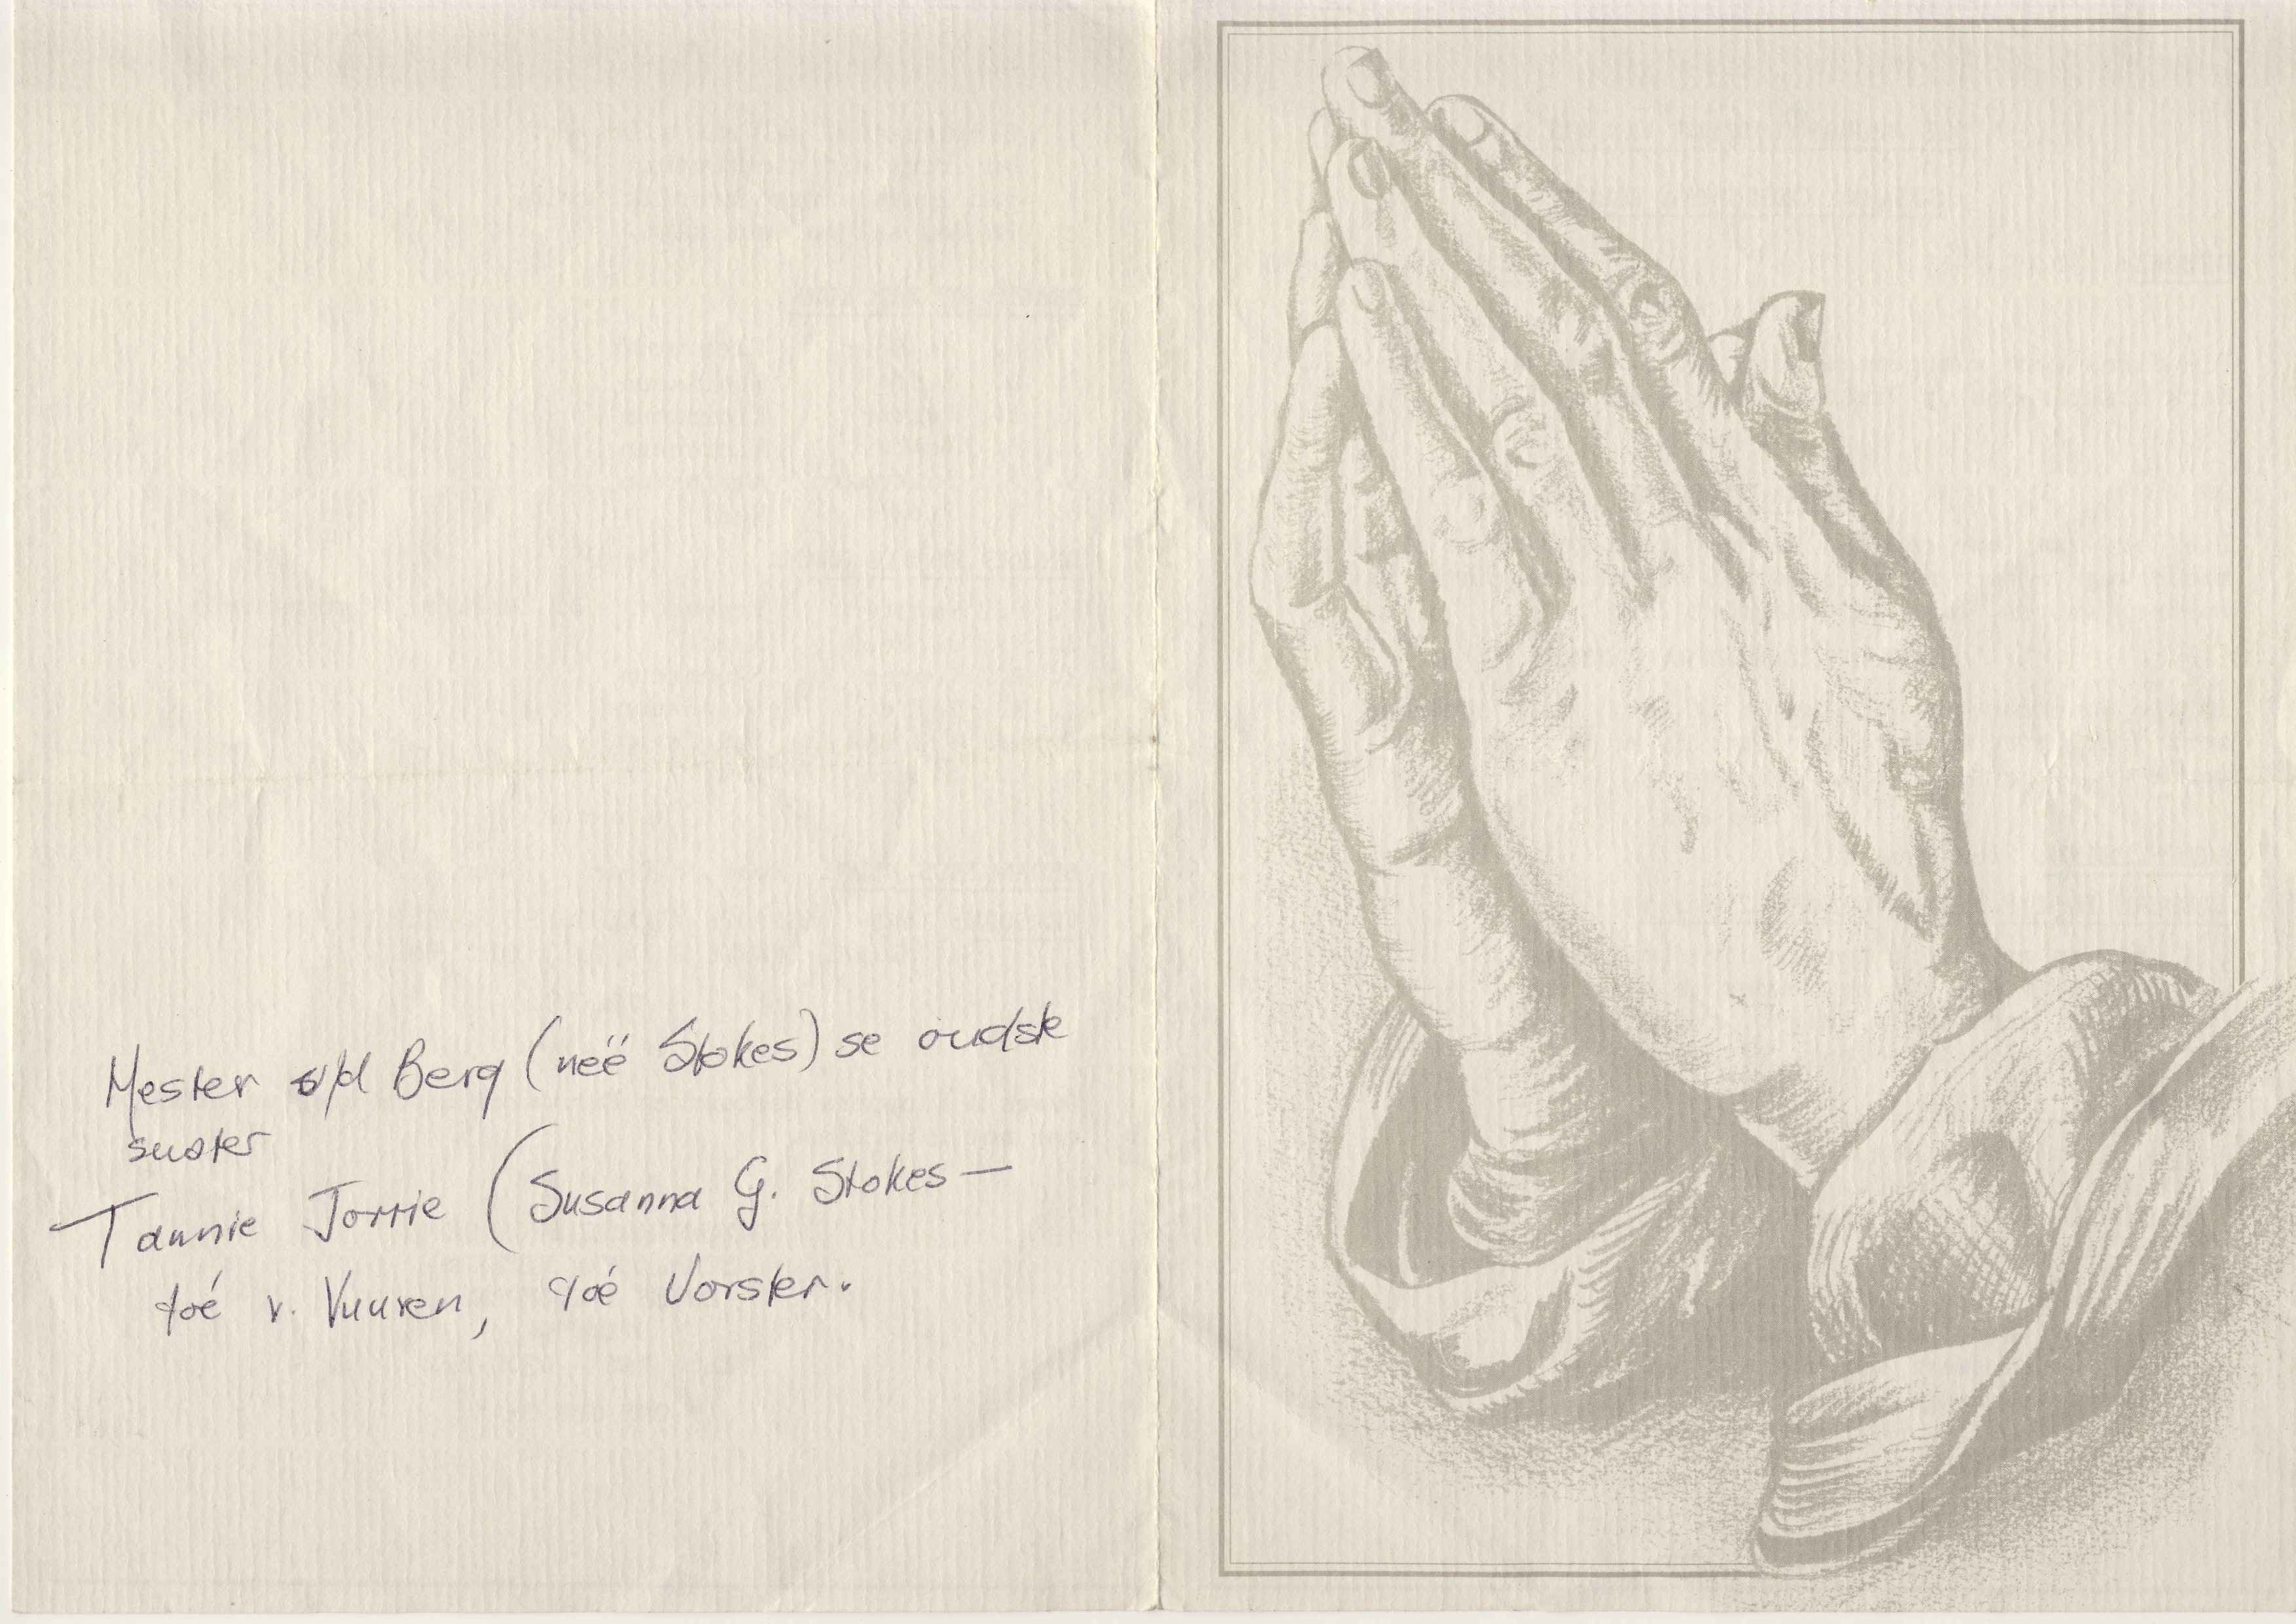 Hester v/d Berg (neë Stokes) se oudste
suster
Tannie Jorrie (Susanna G. Stokes —
toé v. Vuuren, toé Vorster.